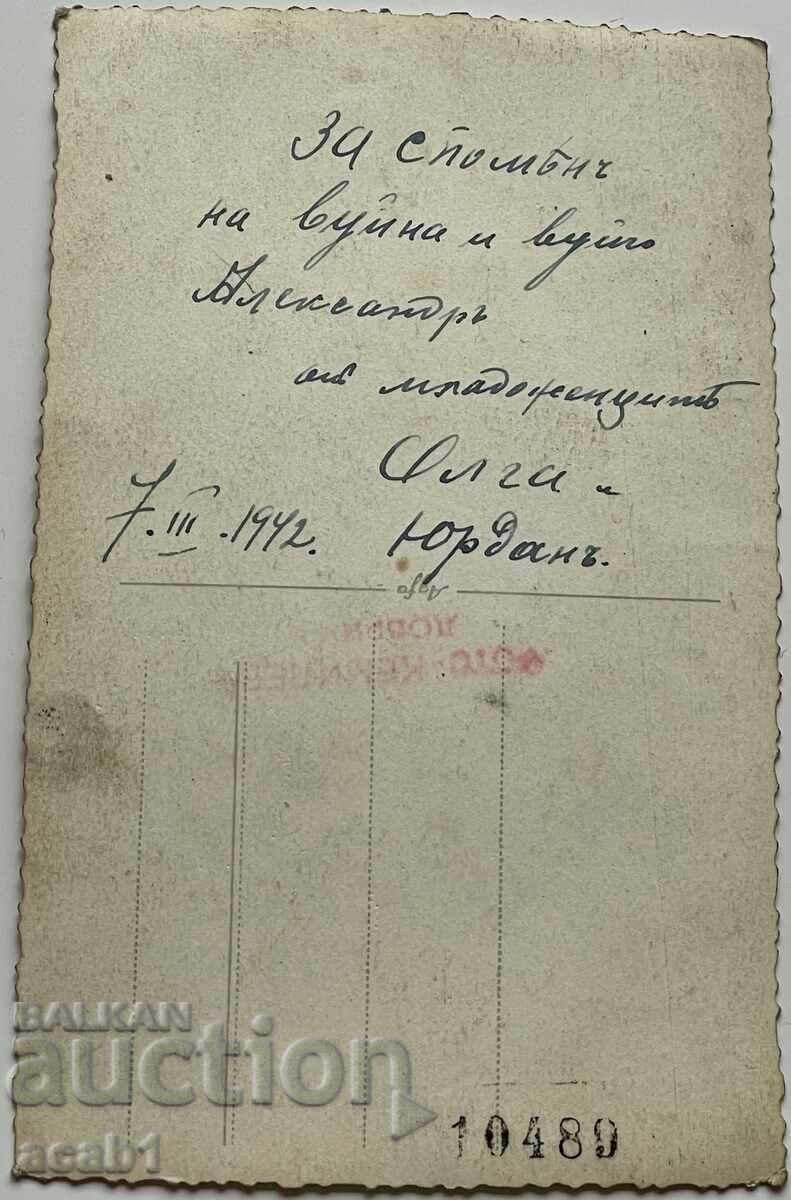 За спомѣнъ
на вуйна и вуйчо
Александръ
отъ младоженцитѣ
Олга и
7.III.1942. Юрданъ.
Agfa
ФОТО
10489
BALKAN
auction
acab1